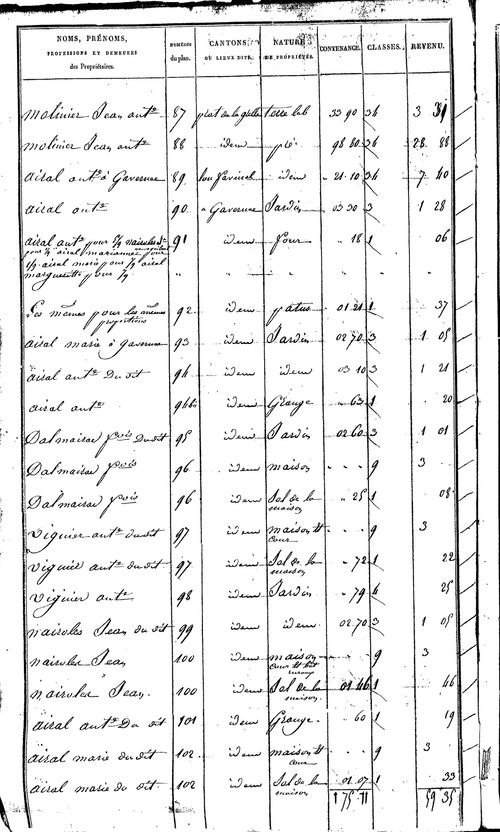 NOMS, PRÉNOMS,
PROFESSIONS ET DEMEURES
des Propriétaires.
NUMÉROS
du plan.
CANTONS
OU LIEUX DITS.
NATURE
DE PROPRIÉTÉS.
CONTENANCE.
CLASSES.
REVENU.
molinier Jean ant.e 87 prat de la terre lab 33 90 34 3
molinier Jean ant.e 88 idem pré 98 80 28 88
airal ant.e à Gavernue 89 idem 21 10 7 40
airal ant.e 90 a Gavernue Jardin 03 30 3 1 28
airal ant.e pour 91 idem four 18 1 06
airal marianne pour
airal marie pour airal
marguerite pour
Les mêmes pour les mêmes 92 idem patus 01 21 1 37
proportions
airal marie à gavernue 93 idem Jardin 02 70 3 1 05
airal ant.e Du dit 94 idem idem 03 10 3 1 21
airal ant.e idem Grange 63 1 20
Dalmairae f.cois du dit 95 idem Jardin 02 60 3 1 01
Dalmairae f.cois 96 idem maison 9 3
Dalmairae f.cois 96 idem Sol de la 25 1 08
maison
viguier ant.e du dit 97 idem maison et 9 3
cour
viguier ant.e du dit 97 idem Sol de la 72 1 22
maison
viguier ant.e 98 idem Jardin 79 4 25
nairoles Jean du dit 99 idem idem 02 70 3 1 05
nairoles Jean 100 idem maison 9 3
cour et
nairoles Jean. 100 idem Sol de la 01 46 1 46
maison.
airal ant.e Du dit 101 idem Grange 60 1 19
airal marie du dit 102 idem maison et 9 3
cour
airal marie du dit. 102 idem Sol de la 01 07 1 33
maison
1 75 11 59 35